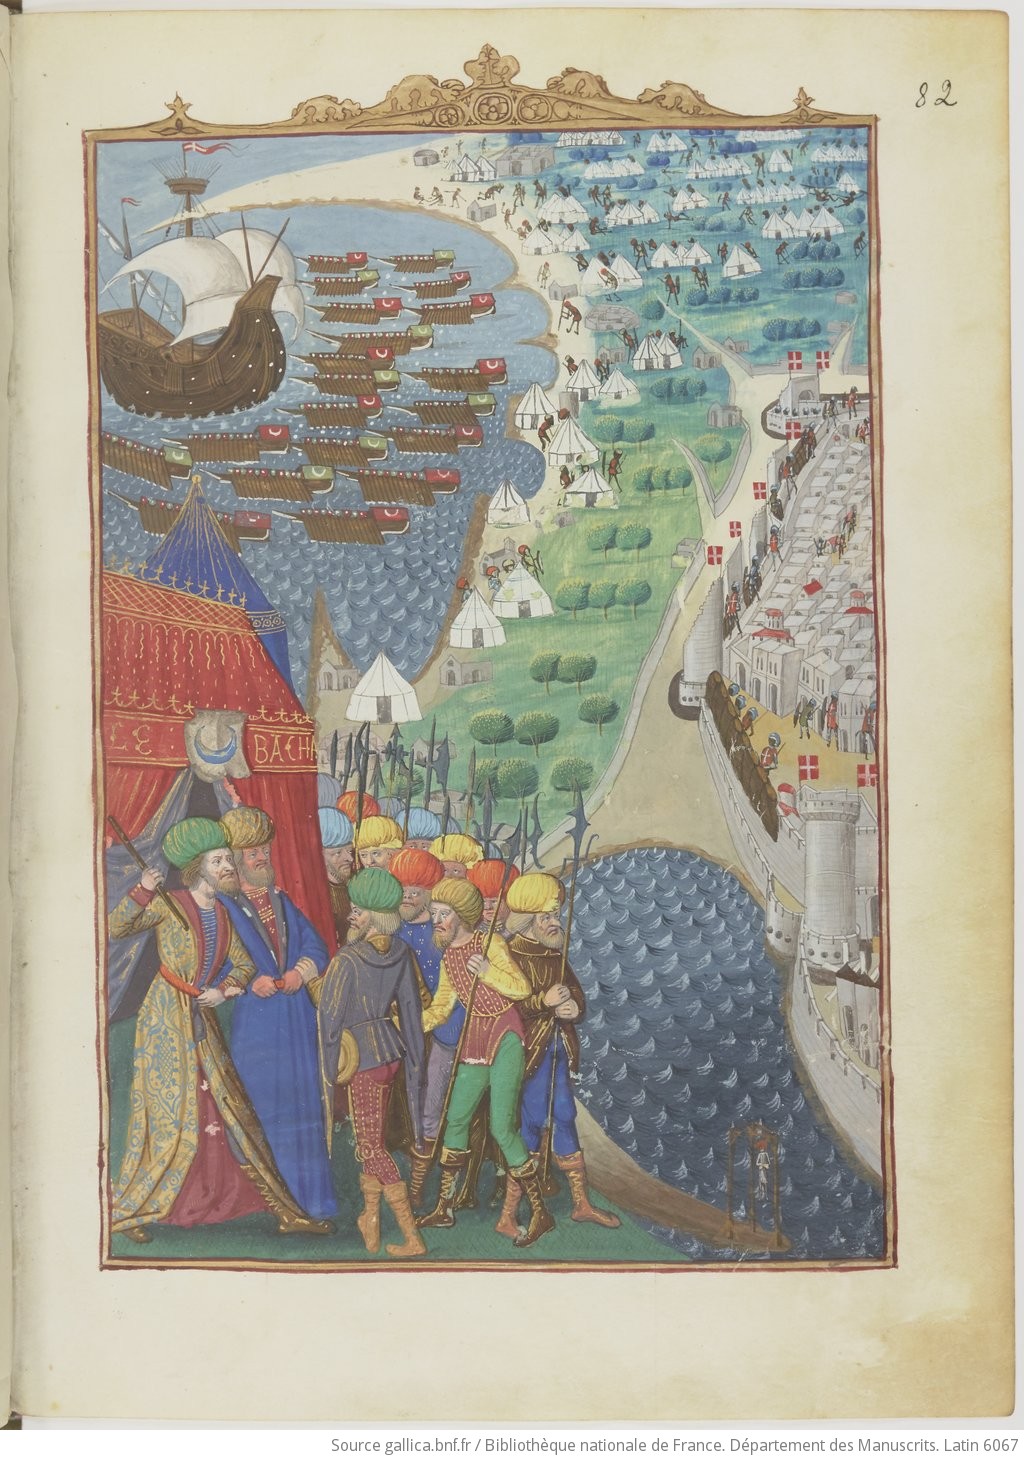 82
LE · BACHA
Source gallica.bnf.fr / Bibliothèque nationale de France. Département des Manuscrits. Latin 6067